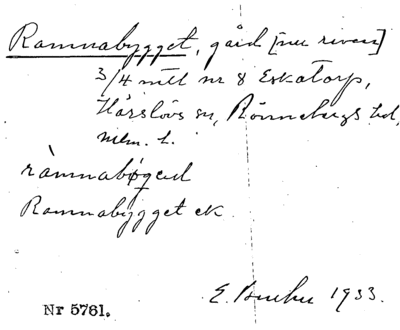 Ramnabygget, gård [nu riven]
3/4 mtl nr 8 Eskatorp,
Härslövs sn, Rönnebergs hd,
Mlm. l.
ràmnabøgəd
Ramnabygget ek.
E. 1933.
Nr 5761.